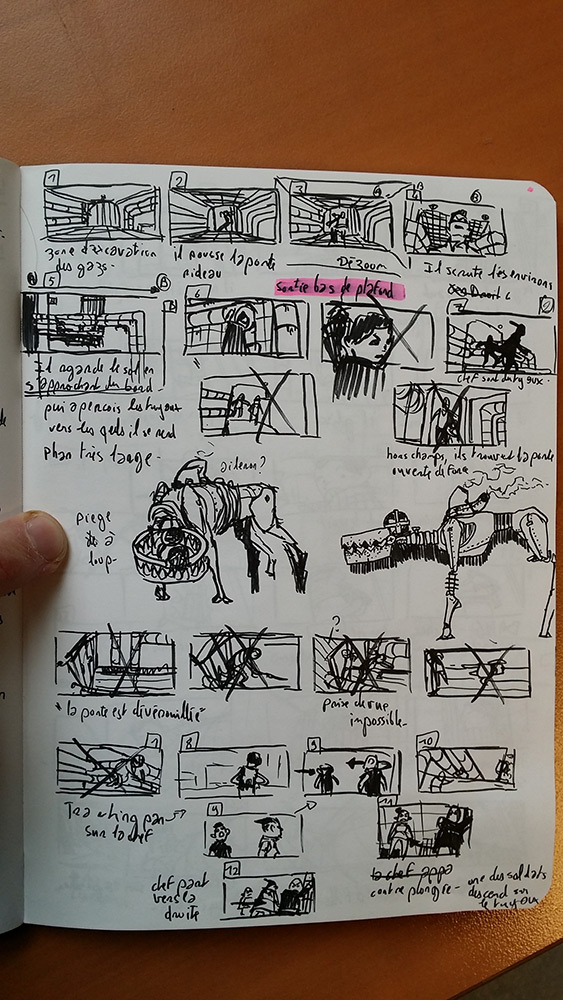 1
2
3
4
A
B
zone d'excavation
des gazs.
il pousse la porte
rideau
Dézoom
Il scrute les environs
sortie bas de plafond
A
5
B
6
7
Il regarde le sol en
s'approchant du bord
puis apercois les tuyaux
vers les quels il se rend
plan très large.
chef sont du tuyaux.
hors champs, ils trouvent la porte
ouverte
ailerons?
piege
à
loup.
?
"la porte est dévérouillée"
prise de vue
impossible.
7
8
9
10
Tracking pan
sur le chef
9
11
12
chef part
vers la
droite
contre plongée.
une des soldats
descend sur
le tuyaux